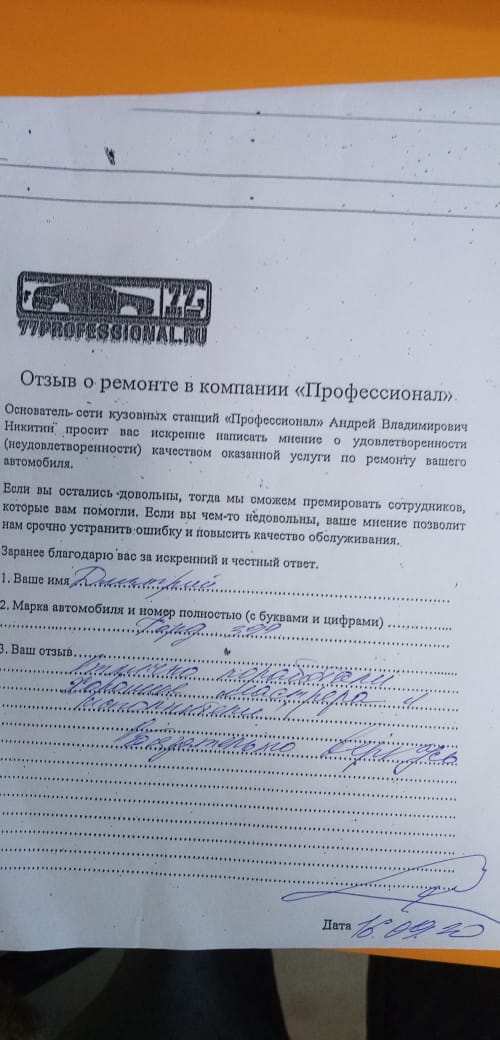 77
77PROFESSIONAL.RU
Отзыв о ремонте в компании «Профессионал».
Основатель сети кузовных станций «Профессионал» Андрей Владимирович
Никитин просит вас искренне написать мнение о удовлетворенности
(неудовлетворенности) качеством оказанной услуги по ремонту вашего
автомобиля.
Если вы остались довольны, тогда мы сможем премировать сотрудников,
которые вам помогли. Если вы чем-то недовольны, ваше мнение позволит
нам срочно устранить ошибку и повысить качество обслуживания.
Заранее благодарю вас за искренний и честный ответ.
1. Ваше имя Дмитрий
2. Марка автомобиля и номер полностью (с буквами и цифрами)
Форд
3. Ваш отзыв
Отлично поработали
хорошие мастера и
исполнители
Обязательно вернусь
Дата 16.09.20